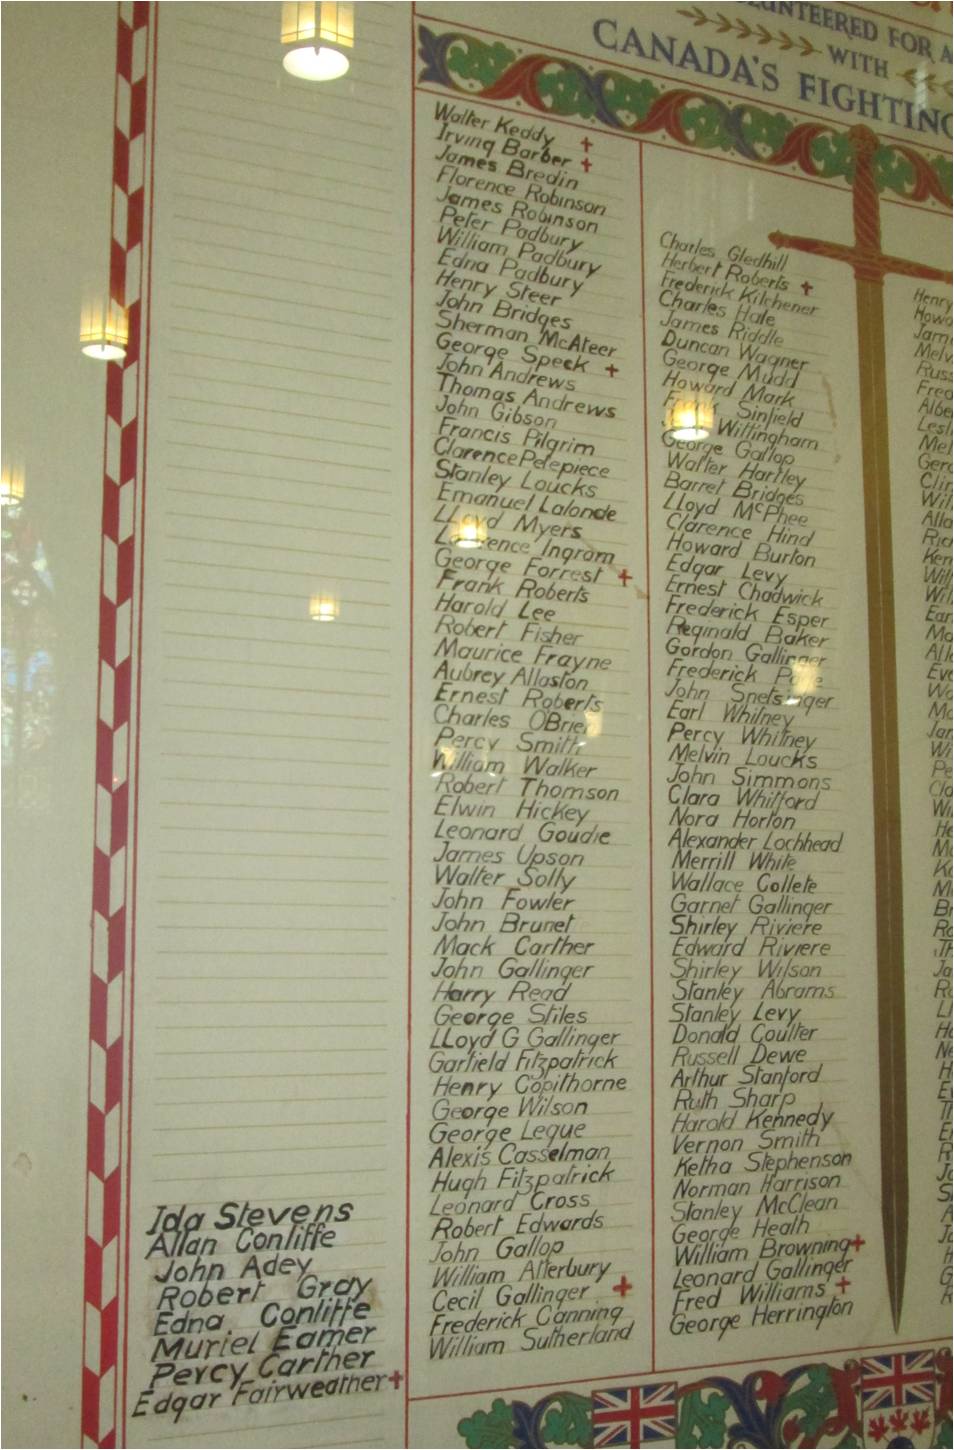 VOLUNTEERED FOR A
WITH
CANADA'S FIGHTING
Ida Stevens
Allan Conliffe
John Adey
Robert Gray
Edna Conliffe
Muriel Eamer
Percy Carther
Edgar Fairweather
Walter Keddy
Irving Barber
James Bredin
Florence Robinson
James Robinson
Peter Padbury
William Padbury
Edna Padbury
Henry Steer
John Bridges
Sherman McAteer
George Speck
John Andrews
Thomas Andrews
John Gibson
Francis Pilgrim
Clarence Petepiece
Stanley Loucks
Emanuel Lalonde
LLoyd Myers
Lawrence Ingram
George Forrest
Frank Roberts
Harold Lee
Robert Fisher
Maurice Frayne
Aubrey Allaston
Ernest Roberts
Charles O'Brien
Percy Smith
William Walker
Robert Thomson
Elwin Hickey
Leonard Goudie
James Upson
Walter Solly
John Fowler
John Brunet
Mack Carther
John Gallinger
Harry Read
George Stiles
LLoyd G Gallinger
Garfield Fitzpatrick
Henry Copithorne
George Wilson
George Legue
Alexis Casselman
Hugh Fitzpatrick
Leonard Cross
Robert Edwards
John Gallop
William Atterbury
Cecil Gallinger
Frederick Canning
William Sutherland
Charles Gledhill
Herbert Roberts
Frederick Kilchener
Charles Hale
James Riddle
Duncan Wagner
George Mudd
Howard Mark
Frank Sinfield
Wittingham
George Gallop
Walter Hartley
Barret Bridges
LLoyd McPhee
Clarence Hind
Howard Burton
Edgar Levy
Ernest Chadwick
Frederick Esper
Reginald Baker
Gordon Gallinger
Frederick
John Snetsinger
Earl Whitney
Percy Whitney
Melvin Loucks
John Simmons
Clara Whitford
Nora Horton
Alexander Lochhead
Merrill White
Wallace Collete
Garnet Gallinger
Shirley Riviere
Edward Riviere
Shirley Wilson
Stanley Abrams
Stanley Levy
Donald Coulter
Russell Dewe
Arthur Stanford
Ruth Sharp
Harold Kennedy
Vernon Smith
Ketha Stephenson
Norman Harrison
Stanley McClean
George Heath
William Browning
Leonard Gallinger
Fred Williams
George Herrington
Henry